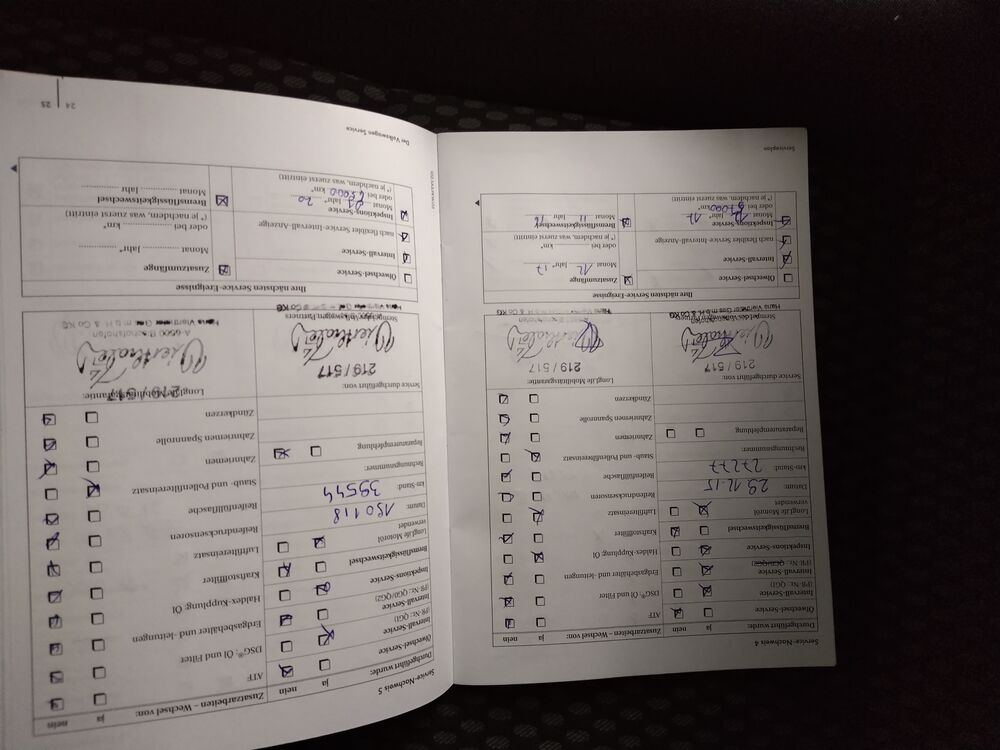 Service-Nachweis 4
Durchgeführt wurde: ja nein
Ölwechsel-Service
Intervall-Service
(PR-Nr.: QG1)
Intervall-Service
(PR-Nr.: QG0/QG2)
Inspektions-Service
Bremsflüssigkeitswechsel
LongLife Motoröl
verwendet
Datum: 29.12.15
km-Stand: 27277
Rechnungsnummer:
Reparaturempfehlung
Service durchgeführt von:
219/517
Stempel des Volkswagen Partners
Zusatzarbeiten – Wechsel von: ja nein
ATF
DSG®: Öl und Filter
Erdgasbehälter und -leitungen
Haldex-Kupplung: Öl
Kraftstofffilter
Luftfiltereinsatz
Reifendrucksensoren
Reifenfüllflasche
Staub- und Pollenfiltereinsatz
Zahnriemen
Zahnriemen Spannrolle
Zündkerzen
LongLife Mobilitätsgarantie:
219/517
Ihre nächsten Service-Ereignisse
Ölwechsel-Service
Intervall-Service
nach flexibler Service-Intervall-Anzeige
Inspektions-Service
Monat 12 Jahr* 17
oder bei 57000 km*
(* je nachdem, was zuerst eintritt)
Zusatzumfänge
Monat 12 Jahr* 17
oder bei km*
(* je nachdem, was zuerst eintritt)
Bremsflüssigkeitswechsel
Monat 11 Jahr 16
Serviceplan
Service-Nachweis 5
Durchgeführt wurde: ja nein
Ölwechsel-Service
Intervall-Service
(PR-Nr.: QG1)
Intervall-Service
(PR-Nr.: QG0/QG2)
Inspektions-Service
Bremsflüssigkeitswechsel
LongLife Motoröl
verwendet
Datum: 150118
km-Stand: 39544
Rechnungsnummer:
Reparaturempfehlung
Service durchgeführt von:
219/517
Stempel des Volkswagen Partners
Zusatzarbeiten – Wechsel von: ja nein
ATF
DSG®: Öl und Filter
Erdgasbehälter und -leitungen
Haldex-Kupplung: Öl
Kraftstofffilter
Luftfiltereinsatz
Reifendrucksensoren
Reifenfüllflasche
Staub- und Pollenfiltereinsatz
Zahnriemen
Zahnriemen Spannrolle
Zündkerzen
LongLife Mobilitätsgarantie:
A-5500 Bischofshofen
Ihre nächsten Service-Ereignisse
Ölwechsel-Service
Intervall-Service
nach flexibler Service-Intervall-Anzeige
Inspektions-Service
Monat 01 Jahr* 20
oder bei km*
(* je nachdem, was zuerst eintritt)
Zusatzumfänge
Monat Jahr*
oder bei km*
(* je nachdem, was zuerst eintritt)
Bremsflüssigkeitswechsel
Monat Jahr
Der Volkswagen Service
24 25